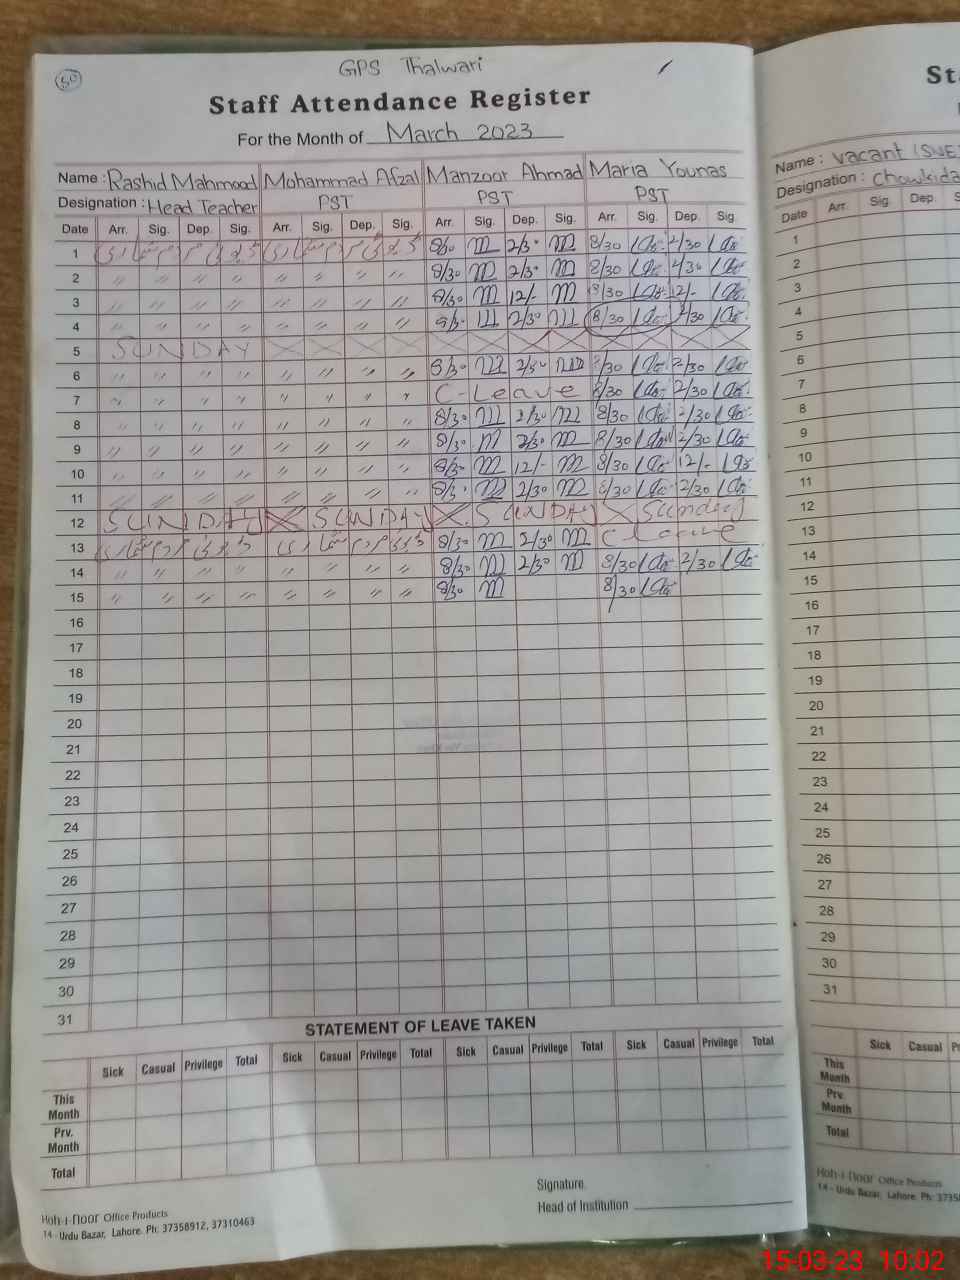 50
GPS Thalwari
Staff Attendance Register
For the Month of March 2023
Name : Rashid Mahmood Mohammad Afzal Manzoor Ahmad Maria Younas
Designation : Head Teacher PST PST PST
Date Arr. Sig. Dep. Sig. Arr. Sig. Dep. Sig. Arr. Sig. Dep. Sig. Arr. Sig. Dep. Sig.
1 ڈیوٹی مردم شماری ڈیوٹی مردم شماری 2/30 8/30 2/30
2 " " " " " " " " 8/30 2/30 8/30 2/30
3 " " " " " " " " 8/30 12/- 8/30 12/-
4 " " " " " " " " 2/30 8/30 2/30
5 SUNDAY
6 " " " " " " " " 8/30 2/30 8/30 2/30
7 " " " " " " " " C-Leave 8/30 2/30
8 " " " " " " " " 8/30 2/30 8/30 2/30
9 " " " " " " " " 8/30 2/30 8/30 2/30
10 " " " " " " " " 8/30 12/- 8/30 12/-
11 " " " " " " " " 8/30 2/30 8/30 2/30
12 SUNDAY SUNDAY SUNDAY Sunday
13 ڈیوٹی مردم شماری ڈیوٹی مردم شماری 8/30 2/30 C Leave
14 " " " " " " " " 8/30 2/30 8/30 2/30
15 " " " " " " " " 8/30 8/30
16
17
18
19
20
21
22
23
24
25
26
27
28
29
30
31
STATEMENT OF LEAVE TAKEN
Sick Casual Privilege Total Sick Casual Privilege Total Sick Casual Privilege Total Sick Casual Privilege Total
This Month
Prv. Month
Total
Signature
Head of Institution
Hoh-i-noor Office Products
14 - Urdu Bazar, Lahore. Ph: 37358912, 37310463
Name : Vacant (SNE
Designation : Chowkida
Date Arr. Sig. Dep.
1
2
3
4
5
6
7
8
9
10
11
12
13
14
15
16
17
18
19
20
21
22
23
24
25
26
27
28
29
30
31
Sick Casual
This Month
Prv. Month
Total
Hoh-i-noor Office Products
14 - Urdu Bazar, Lahore. Ph:
15-03-23 10:02